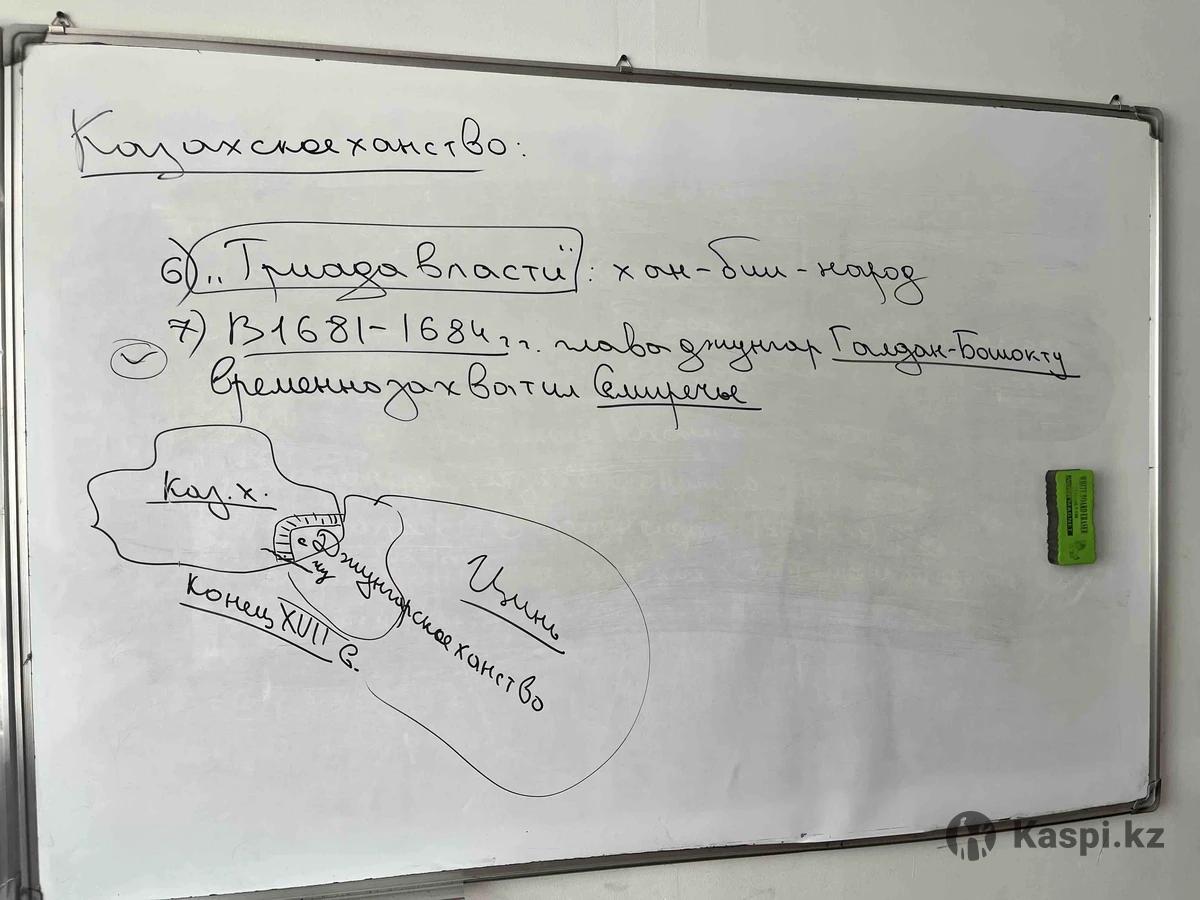 Казахское ханство:
6) „Триада власти": хан-бии-народ
7) В 1681-1684 гг. глава джунгар Галдан-Бошокту
временно захватил Семиречье
Каз.х.
Джунгарское ханство
Цинь
Конец XVII в.
WHITE BOARD ERASER
Kaspi.kz